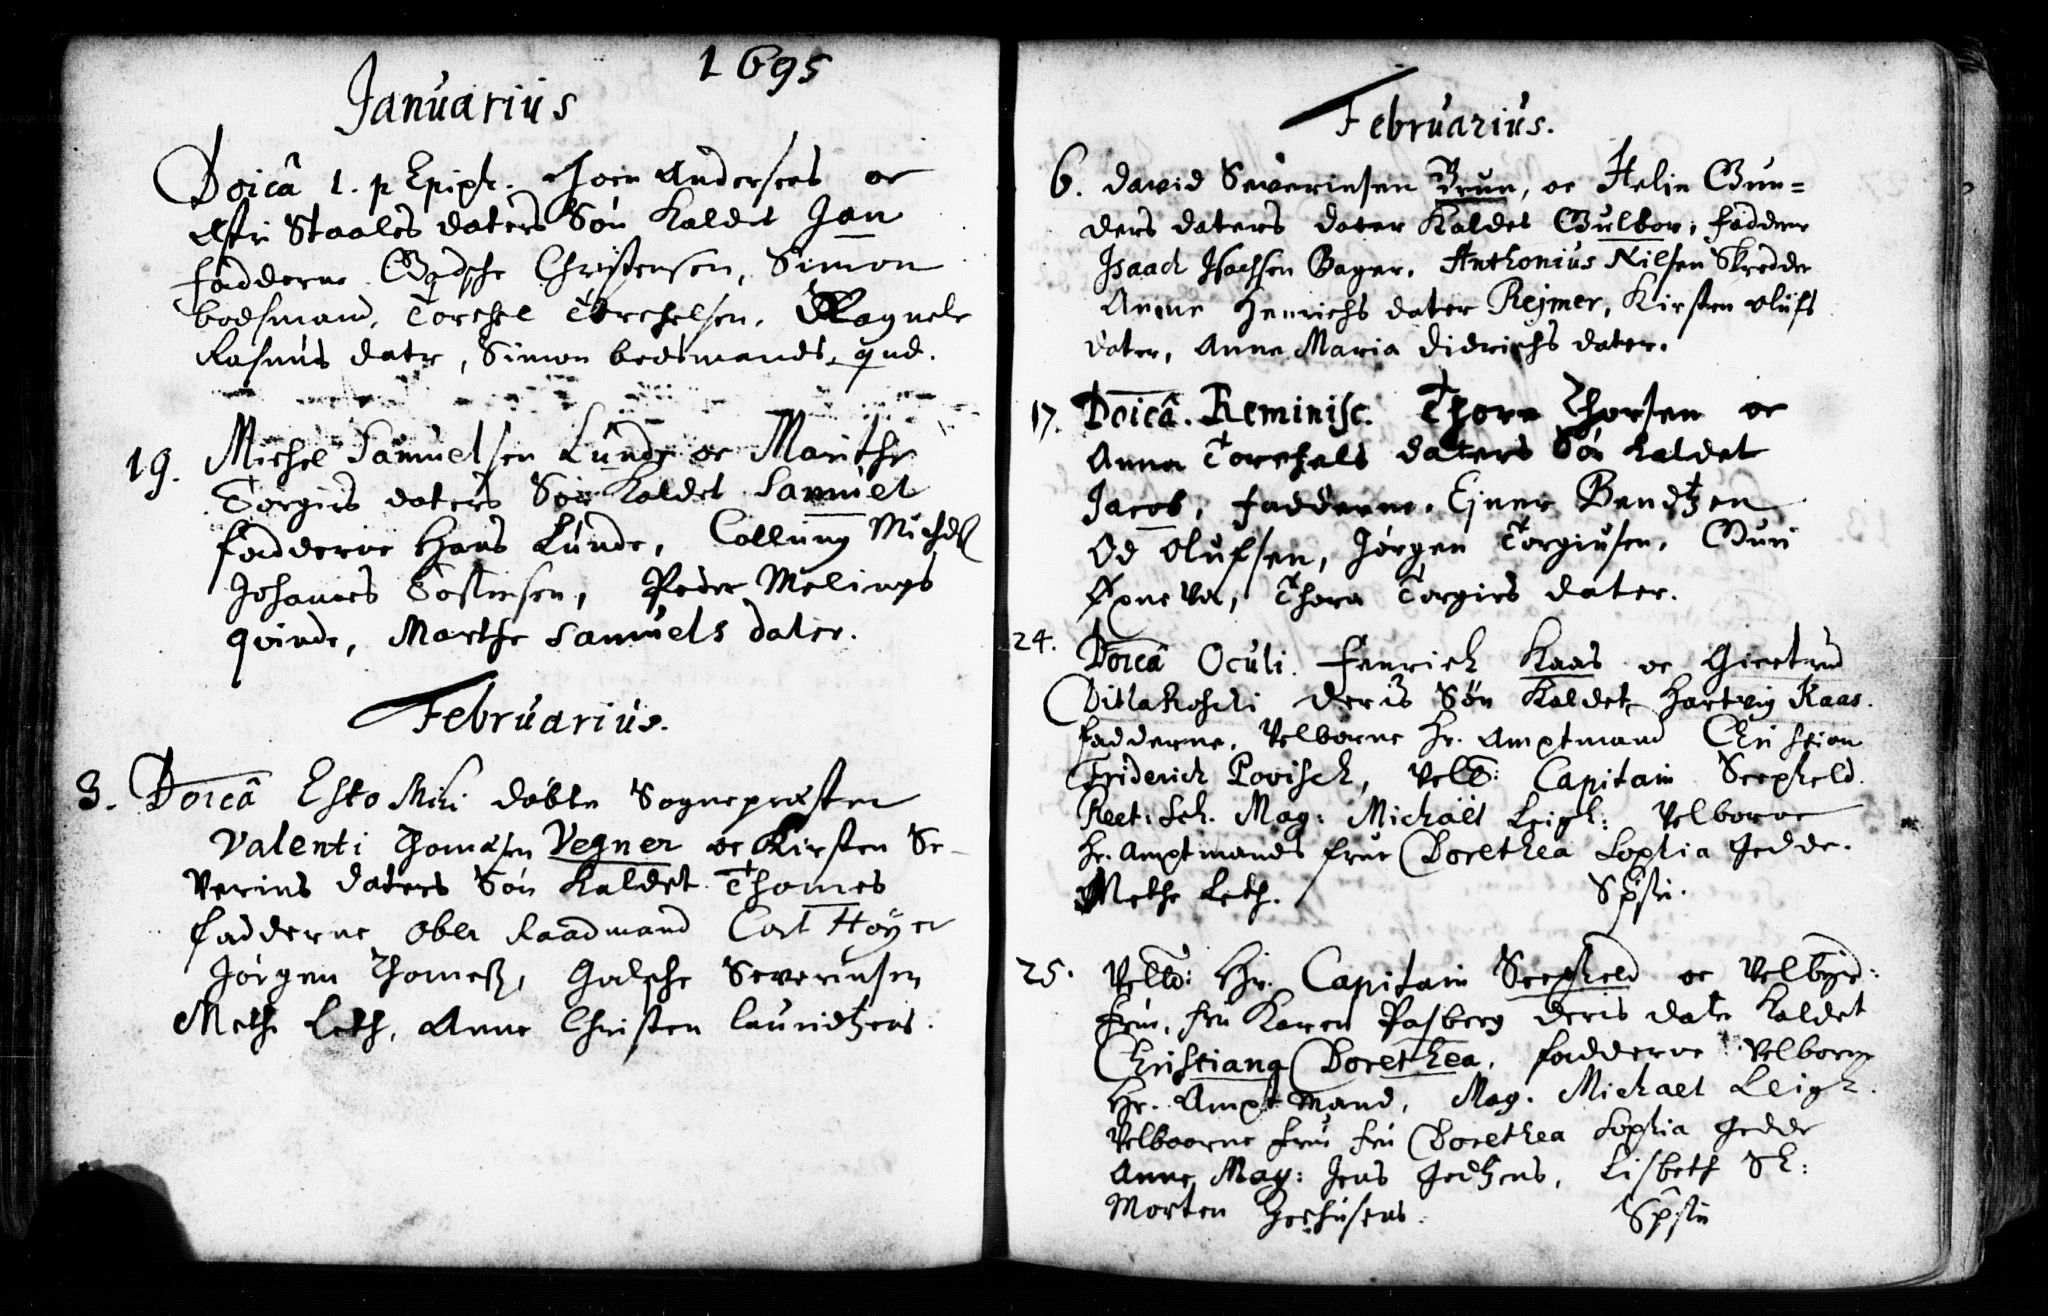 1695
Januarius
Doicâ 1. p Epiph. Thoen Andersens oc
Astri Staales daters Søn kaldet Jan
fadderne Godsche Christensen, Simon
bodsmand, Torchel Torchelsen, Ragnele
Rasmus datr, Simon bodsmands qnd.
19. Michel Samuelsen Lunde oc Marithe
Torgirs daters Søn kaldet Samuel
fadderne Hans Lunde, Collung Michels
Johannes Tostensen, Peder Melings
qvinde, Marthe Samuels dater.
Februarius.
3. Doicâ Esto Mihi døbte Sognepræsten
Valenti Thomæsen Vegner oc Kirsten Se-
verins daters Søn kaldet Thomes
fadderne Ober Raadmand Cort Høyer
Jørgen Thomeß, Godsche Severinsen
Methe Leth, Anne Christen Lauridtzens.
Februarius.
6. David Severinsen Brun, oc Helie Gun=
ders daters dater kaldet Gulbor, faddere
Isaach Isachsen Bager, Anthonius Nilsen Skredder
Anne Henrichs dater Rejmer, Kirsten Olufs
dater, Anne Maria Didrichs dater.
17. Doicâ. Reminisc. Thore Thorsen oc
Anna Torchels daters Søn kaldet
Jacob, fadderne, Ejner Bendtzen
Od Olufsen, Jørgen Torgiusen, Guri
Øxneva, Thora Torgirs dater.
24. Doicâ Oculi. Henrich Kaas oc Giertrud
deris Søn kaldet Hartvig Kaas.
fadderne, Velborne Hr. Amptmand Christian
Friderich Povisch, Velb: Capitain Seepheld
Rect: Sch. Mag: Michael Leigh: Velborne
Hr. Amptmands frue Dorethea Sophia Gedde.
Methe Leth.
25. Velb: Hr. Capitain Seepheld oc Velbyrd:
frue, fru Karen Pasberg deris dater kaldet
Christiana Dorethea, fadderne Velborne
Hr. Amptmand, Mag. Michael Leigh.
Velboorne frue fru Dorethea Sophia Gedde
Anne Mag: Jens Gedtzens, Lisbeth Sl:
Morten